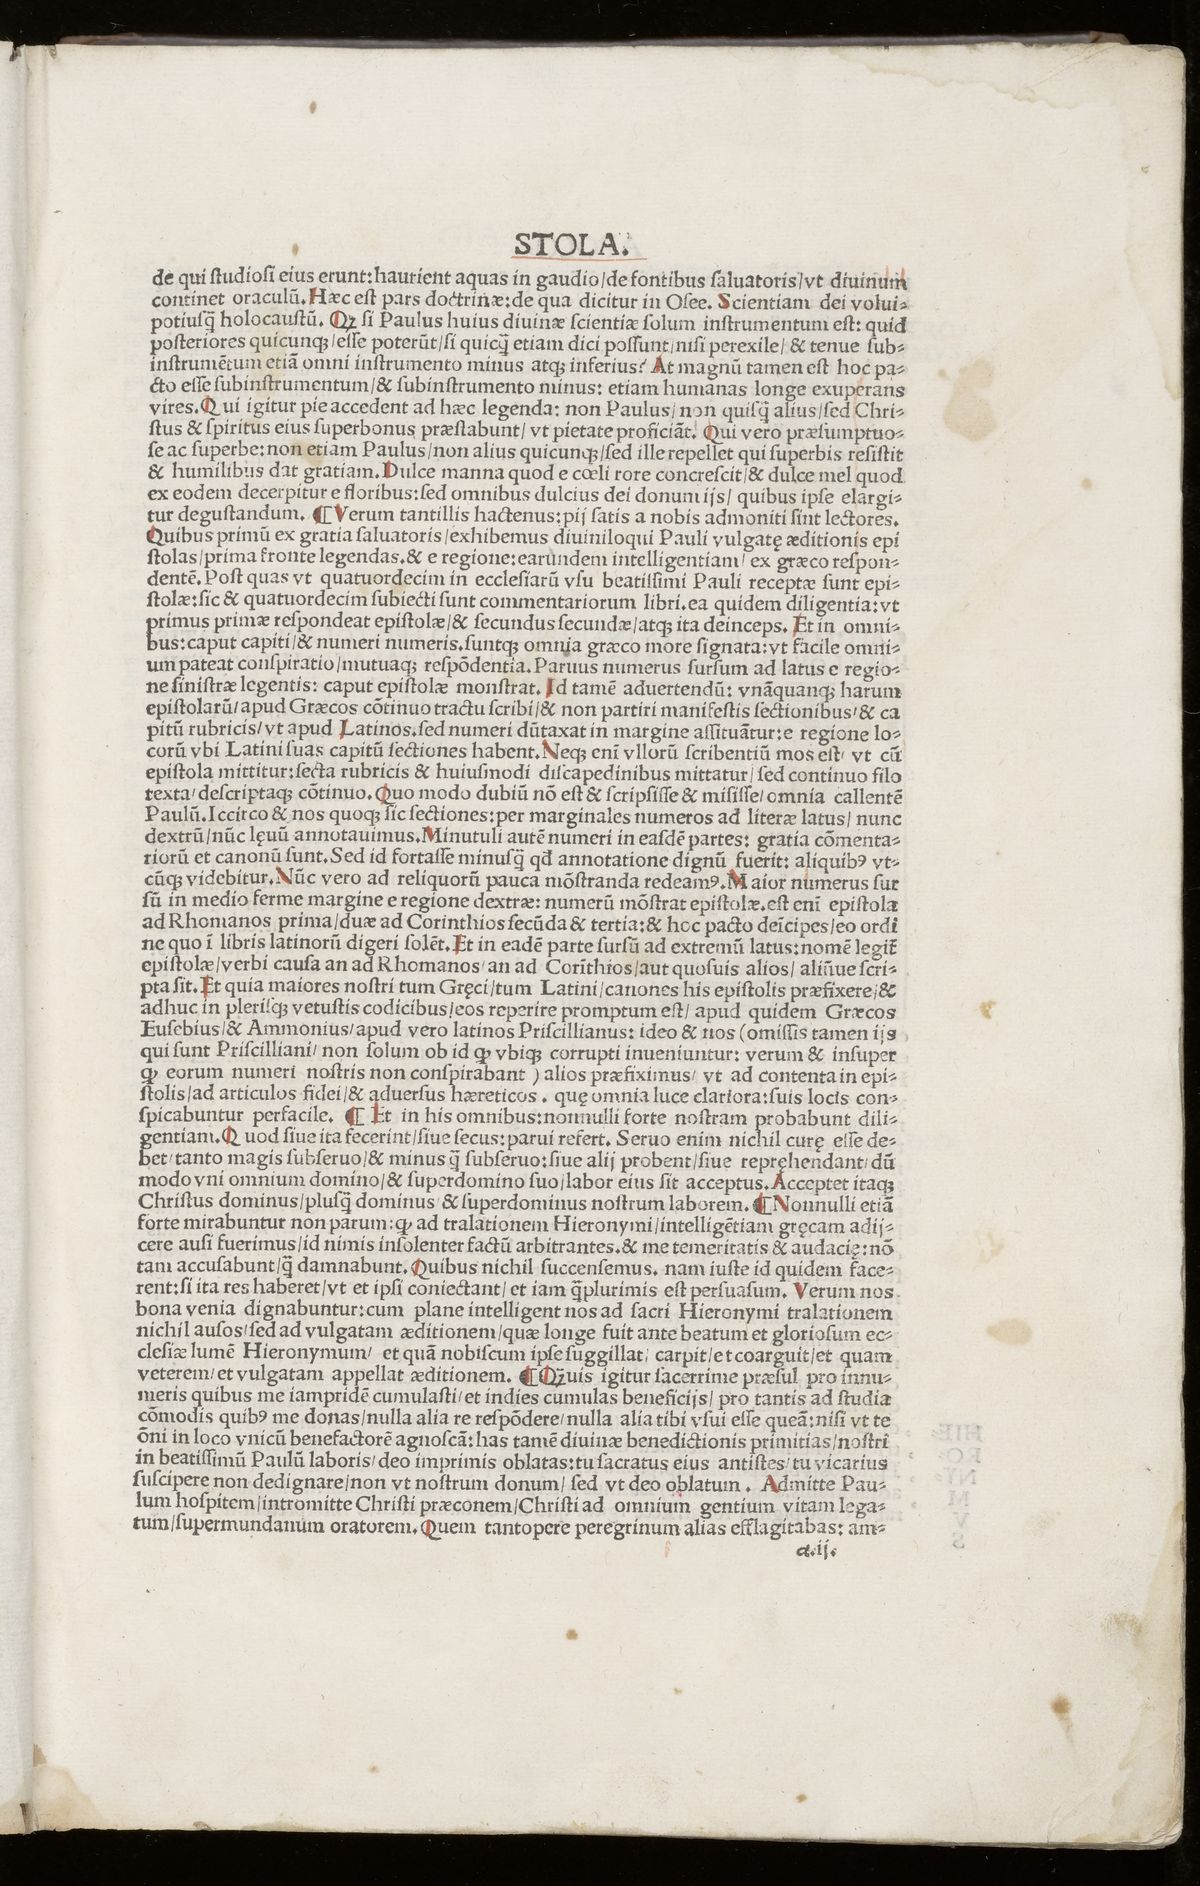 STOLA.
de qui ſtudioſi eius erunt:haurient aquas in gaudio/de fontibus ſaluatoris/vt diuinum
continet oraculū. Hæc eſt pars doctrinæ:de qua dicitur in Oſee. Scientiam dei volui⸗
potiuſq̃ holocauſtū. Qꝫ ſi Paulus huius diuinæ ſcientiæ ſolum inſtrumentum eſt: quid
poſteriores quicunqꝫ/eſſe poterūt/ſi quicq̃ etiam dici poſſunt/niſi perexile/ & tenue ſub⸗
inſtrumētum etiā omni inſtrumento minus atqꝫ inferius? At magnū tamen eſt hoc pa⸗
cto eſſe ſubinſtrumentum/& ſubinſtrumento minus: etiam humanas longe exuperans
vires. Qui igitur pie accedent ad hæc legenda: non Paulus/ non quiſq̃ alius/ſed Chri⸗
ſtus & ſpiritus eius ſuperbonus præſtabunt/ vt pietate proficiāt. Qui vero præſumptuo⸗
ſe ac ſuperbe:non etiam Paulus/non alius quicunqꝫ/ſed ille repellet qui ſuperbis reſiſtit
& humilibus dat gratiam. Dulce manna quod e cœli rore concreſcit/& dulce mel quod
ex eodem decerpitur e floribus:ſed omnibus dulcius dei donum ijs/ quibus ipſe elargi⸗
tur deguſtandum. ¶ Verum tantillis hactenus:pij ſatis a nobis admoniti ſint lectores.
Quibus primū ex gratia ſaluatoris/exhibemus diuiniloqui Pauli vulgatę æditionis epi
ſtolas/prima fronte legendas.& e regione:earundem intelligentiam/ ex græco reſpon⸗
dentē. Poſt quas vt quatuordecim in eccleſiarū vſu beatiſſimi Pauli receptæ ſunt epi⸗
ſtolæ:ſic & quatuordecim ſubiecti ſunt commentariorum libri.ea quidem diligentia:vt
primus primæ reſpondeat epiſtolæ/& ſecundus ſecundæ/atqꝫ ita deinceps. Et in omni⸗
bus:caput capiti/& numeri numeris.ſuntqꝫ omnia græco more ſignata:vt facile omni⸗
um pateat conſpiratio/mutuaqꝫ reſpōdentia. Paruus numerus ſurſum ad latus e regio⸗
ne ſiniſtræ legentis: caput epiſtolæ monſtrat. Id tamē aduertendū: vnāquanqꝫ harum
epiſtolarū/apud Græcos cōtinuo tractu ſcribi/& non partiri manifeſtis ſectionibus/& ca
pitū rubricis/vt apud Latinos.ſed numeri dūtaxat in margine aſſituātur:e regione lo⸗
corū vbi Latini ſuas capitū ſectiones habent. Neqꝫ enī vllorū ſcribentiū mos eſt/ vt cū
epiſtola mittitur:ſecta rubricis & huiuſmodi diſcapedinibus mittatur/ ſed continuo filo
texta/deſcriptaqꝫ cōtinuo. Quo modo dubiū nō eſt & ſcripſiſſe & miſiſſe/omnia callentē
Paulū. Iccirco & nos quoqꝫ ſic ſectiones:per marginales numeros ad literæ latus/ nunc
dextrū/nūc lęuū annotauimus. Minutuli autē numeri in eaſdē partes: gratia cōmenta⸗
riorū et canonū ſunt. Sed id fortaſſe minuſq̃ qđ annotatione dignū fuerit: aliquibꝰ vt⸗
cūqꝫ videbitur. Nūc vero ad reliquorū pauca mōſtranda redeamꝰ. Maior numerus ſur
ſū in medio ferme margine e regione dextræ: numerū mōſtrat epiſtolæ.eſt enī epiſtola
ad Rhomanos prima/duæ ad Corinthios ſecūda & tertia:& hoc pacto deīcipes/eo ordi
ne quo ī libris latinorū digeri ſolēt. Et in eadē parte ſurſū ad extremū latus:nomē legit̄
epiſtolæ/verbi cauſa an ad Rhomanos/an ad Corīthios/aut quoſuis alios/ aliūue ſcri⸗
pta ſit. Et quia maiores noſtri tum Gręci/tum Latini/canones his epiſtolis præfixere/&
adhuc in pleriſqꝫ vetuſtis codicibus/eos reperire promptum eſt/ apud quidem Græcos
Euſebius/& Ammonius/apud vero latinos Priſcillianus: ideo & nos (omiſſis tamen ijs
qui ſunt Priſcilliani/ non ſolum ob id ꝙ vbiqꝫ corrupti inueniuntur: verum & inſuper
ꝙ eorum numeri noſtris non conſpirabant ) alios præfiximus/ vt ad contenta in epi⸗
ſtolis/ad articulos fidei/& aduerſus hæreticos . quę omnia luce clariora:ſuis locis con⸗
ſpicabuntur perfacile. ¶ Et in his omnibus:nonnulli forte noſtram probabunt dili⸗
gentiam. Quod ſiue ita fecerint/ſiue ſecus:parui refert. Seruo enim nichil curę eſſe de⸗
bet/tanto magis ſubſeruo/& minus q̃ ſubſeruo:ſiue alij probent/ſiue repręhendant/dū
modo vni omnium domino/& ſuperdomino ſuo/labor eius ſit acceptus. Acceptet itaqꝫ
Chriſtus dominus/pluſq̃ dominus & ſuperdominus noſtrum laborem. ¶ Nonnulli etiā
forte mirabuntur non parum:ꝙ ad tralationem Hieronymi/intelligētiam gręcam adij⸗
cere auſi fuerimus/id nimis inſolenter factū arbitrantes.& me temeritatis & audacię:nō
tam accuſabunt/q̃ damnabunt. Quibus nichil ſuccenſemus. nam iuſte id quidem face⸗
rent:ſi ita res haberet/vt et ipſi coniectant/ et iam q̃plurimis eſt perſuaſum. Verum nos
bona venia dignabuntur:cum plane intelligent nos ad ſacri Hieronymi tralationem
nichil auſos/ſed ad vulgatam æditionem/quæ longe fuit ante beatum et glorioſum ec⸗
cleſiæ lumē Hieronymum/ et quā nobiſcum ipſe ſuggillat/ carpit/et coarguit/et quam
veterem/et vulgatam appellat æditionem. ¶ Qꝫuis igitur ſacerrime præſul pro innu⸗
meris quibus me iampridē cumulaſti/et indies cumulas beneficijs/ pro tantis ad ſtudia
cōmodis quibꝰ me donas/nulla alia re reſpōdere/nulla alia tibi vſui eſſe queā:niſi vt te
ōni in loco vnicū benefactorē agnoſcā:has tamē diuinæ benedictionis primitias/noſtri
in beatiſſimū Paulū laboris/deo imprimis oblatas:tu ſacratus eius antiſtes/tu vicarius
ſuſcipere non dedignare/non vt noſtrum donum/ ſed vt deo oblatum . Admitte Pau⸗
lum hoſpitem/intromitte Chriſti præconem/Chriſti ad omnium gentium vitam lega⸗
tum/ſupermundanum oratorem. Quem tantopere peregrinum alias efflagitabas: am⸗
a.ij.